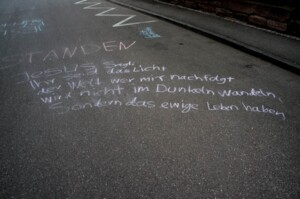 STANDEN
Jesus sagt:
Ihr seid das Licht
der Welt wer mir nachfolgt
wird nicht im Dunkeln wandeln
Sondern das ewige Leben haben